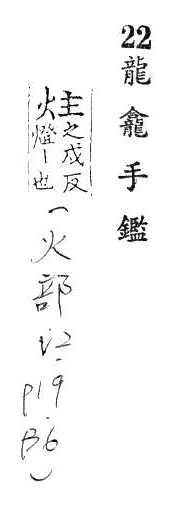 22龍龕手鑑
炷之戍反
燈丨也
(火部 v2.p19.B6)